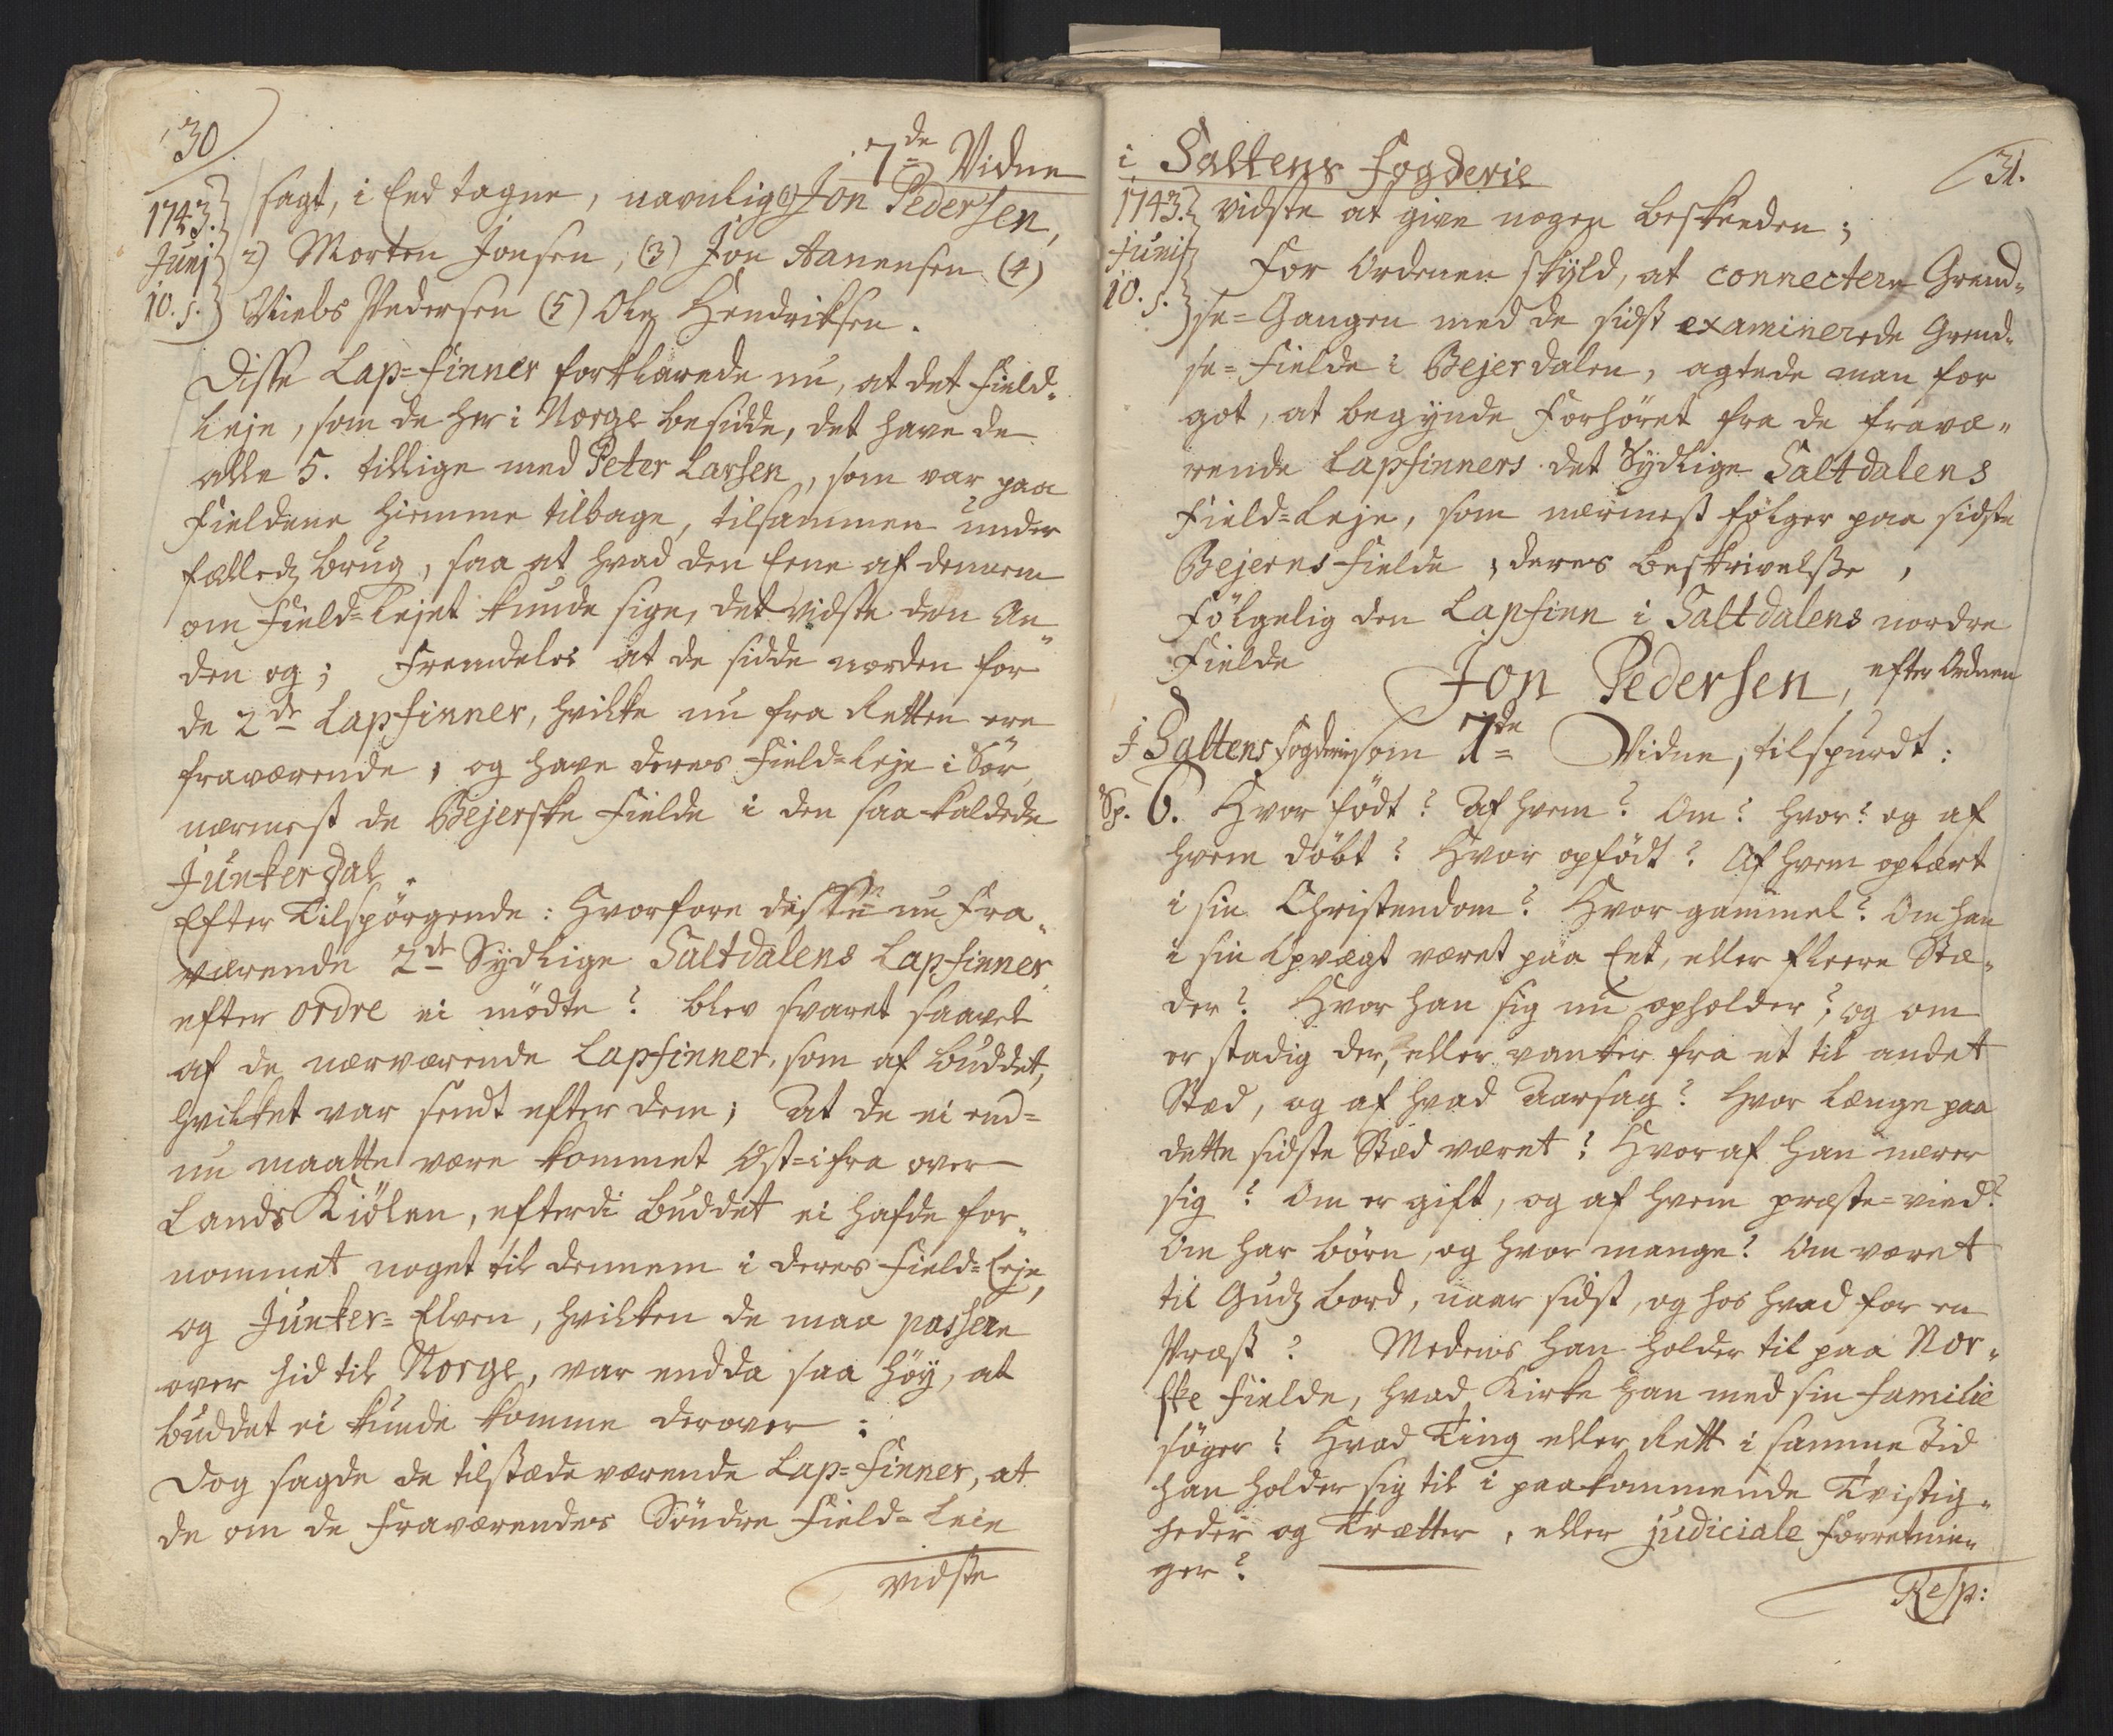 30
7de Vidne
1743.
Junj
10. s.
sagt, i Eed tagne, navnlig 1) Jon Pedersen,
2) Morten Jonsen, (3) Jon Aanensen (4)
Niels Pedersen (5) Ole Hendriksen.
Disse Lap=Finner forklarede nu, at det Field-
Leje, som de her i Norge besidde, det have de
alle 5. tillige med Peter Larsen, som var paa
Fieldene hiemme tilbage, tilsammen under
fælleds brug, saa at hvad den Eene af dennem
om Field=Lejet kunde sige, det vidste den An-
den og; Fremdeles at de sidde norden for
de 2de Lapfinner, hvilke nu fra Retten ere
fraværende, og have deres Field=Leje i Sør
nærmest de Bejerske Fielde i den saa kaldede
Junkerdal.
Efter Tilspørgende: Hvorfore disse nu Fra-
værende 2de Sydlige Saltdalens Lapfinner
efter ordre ei mødte? blev svaret saavel
af de nærværende Lapfinner, som af buddet,
hvilket var sendt efter dem; At de ei end=
nu maatte være kommet Øst=ifra over
Lands Kiølen, efterdi buddet ei hafde for-
nommet noget til dennem i deres Field=Leje,
og Junker=Elven, hvilken de maa passere
over hid til Norge, var endda saa høy, at
buddet ei kunde komme derover:
Dog sagde de tilstædeværende Lap=Finner, at
de om de Fraværendes Søndre Field=Leie
vidste
i Saltens Fogderie
31.
1743.
Junij
10. s.
vidste at give nogen beskeeden;
For Ordenen skyld, at connectere Grend-
se=Gangen med de sidst examinerede Grend-
se=Fielde i Bejerdalen, agtede man for
got, at begynde Forhøret fra de fravæ-
rende Lapfinners det Sydlige Saltdalens
Field=Leje, som nærmest følger paa sidste
Bejerns Fielde, deres beskrivelsse,
Følgelig den Lapfinn i Saltdalens nordre
Fielde
Jon Pedersen, efter Ordnen
j Saltens Fogderie som 7de Vidne, tilspurdt:
Sp. 6. Hvor født? Af hvem? Om? hvor? og af
hvem døbt? Hvor opfødt? Af hvem oplært
i sin Christendom? Hvor gammel? Om han
i sin Opvægt været paa Eet, eller fleere Stæ-
der? Hvor han sig nu opholder? og om
er stadig der, eller vanker fra et til andet
Stæd, og af hvad Aarsag? Hvor længe paa
dette sidste Stæd været? Hvoraf han nærer
sig? Om er gift, og af hvem præste=vied?
Om har børn, og hvor mange? Om været
til Guds bord, naar sidst, og hos hvad for en
Præst? Medens han holder til paa Nor-
ske Fielde, hvad Kirke han med sin familie
søger? Hvad Ting eller Rett i samme Tid
han holder sig til i paakommende Tvistig-
heder og Trætter, eller judiciale Forretnin-
ger?
Resp: